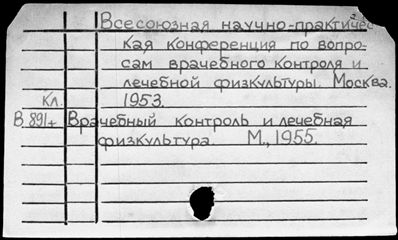 Всесоюзная научно-практичес-
кая конференция по вопро-
сам врачебного контроля и
лечебной физкультуры. Москва.
Кл. 1953.
В.891+ Врачебный контроль и лечебная
физкультура. М., 1955.